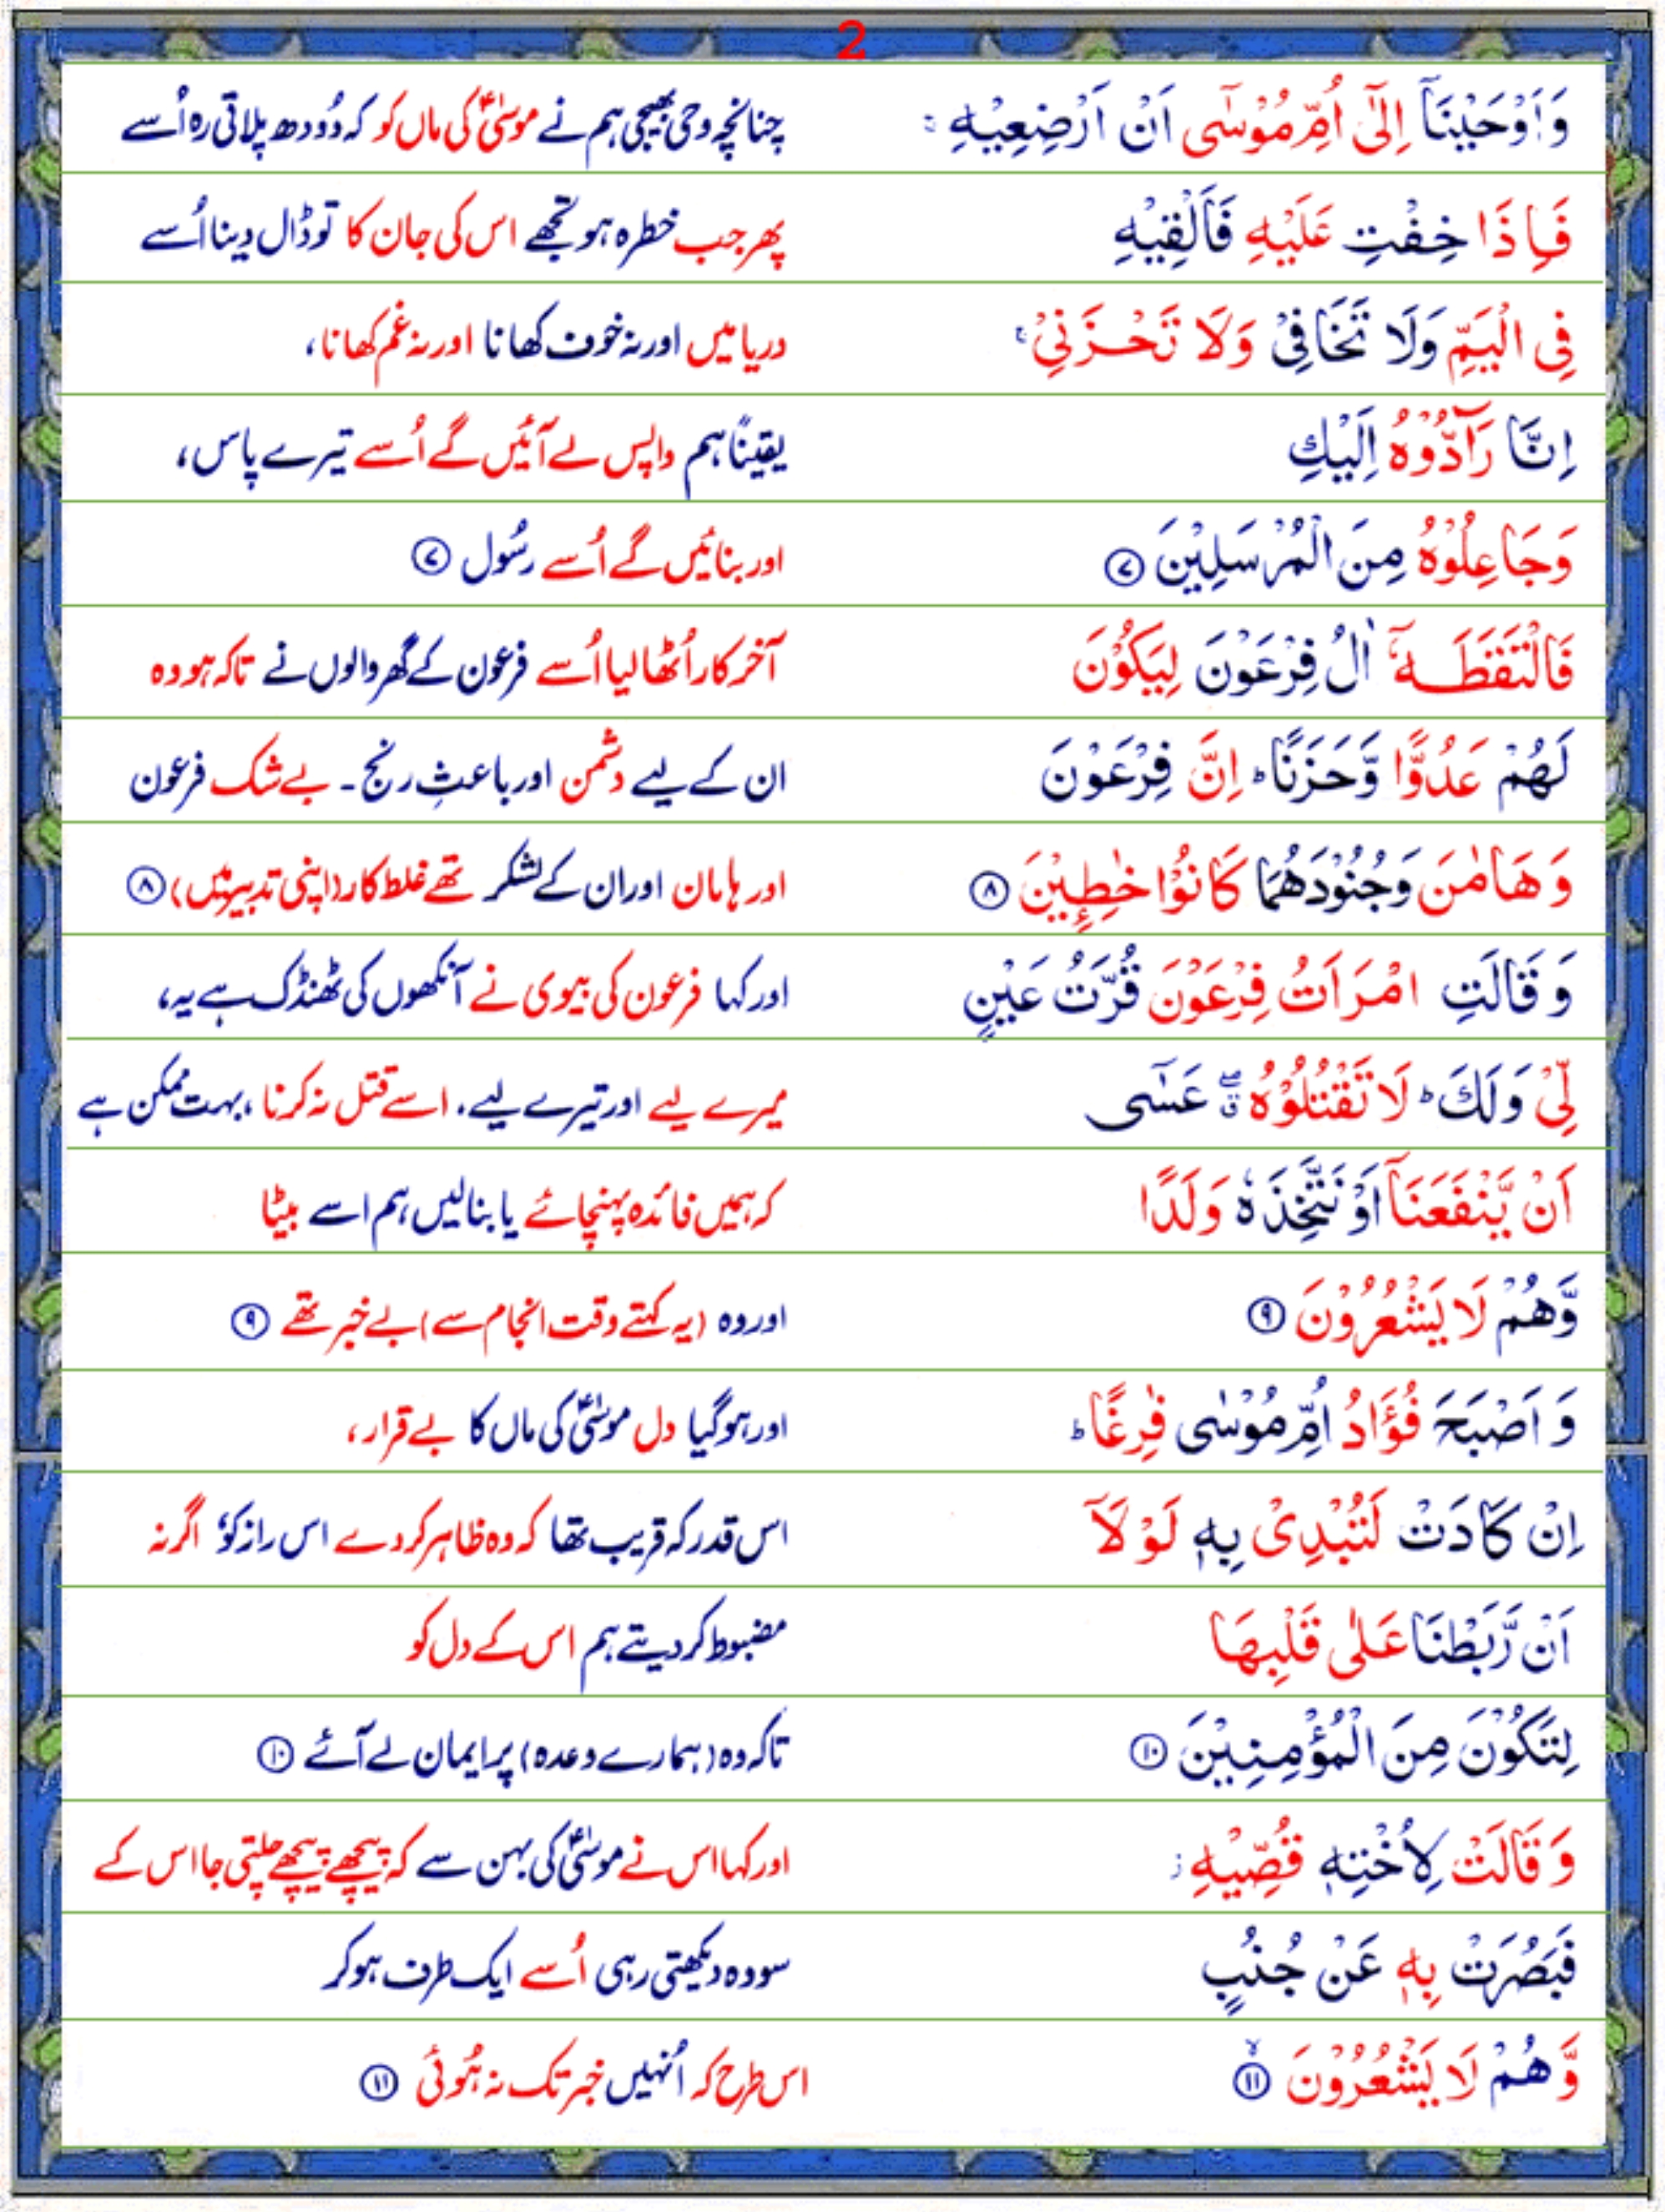 2
وَاَوْحَيْنَآ اِلٰٓى اُمِّ مُوْسٰٓى اَنْ اَرْضِعِيْهِ ۚ چنانچہ وحی بھیجی ہم نے موسیٰؑ کی ماں کو کہ دُودھ پلاتی رہ اُسے
فَاِذَا خِفْتِ عَلَيْهِ فَاَلْقِيْهِ پھر جب خطرہ ہو تجھے اس کی جان کا تو ڈال دینا اُسے
فِى الْيَمِّ وَلَا تَخَافِىْ وَلَا تَحْزَنِىْ ۚ دریا میں اور نہ خوف کھانا اور نہ غم کھانا،
اِنَّا رَآدُّوْهُ اِلَيْكِ یقیناً ہم واپس لے آئیں گے اُسے تیرے پاس،
وَجَاعِلُوْهُ مِنَ الْمُرْسَلِيْنَ ۷ اور بنائیں گے اُسے رسُول ۷
فَالْتَقَطَهٗٓ اٰلُ فِرْعَوْنَ لِيَكُوْنَ آخر کار اُٹھا لیا اُسے فرعون کے گھر والوں نے تاکہ ہو وہ
لَهُمْ عَدُوًّا وَّحَزَنًا ؕ اِنَّ فِرْعَوْنَ ان کے لیے دشمن اور باعثِ رنج۔ بے شک فرعون
وَهَامٰنَ وَجُنُوْدَهُمَا كَانُوْا خٰطِـِٕيْنَ ۸ اور ہامان اور ان کے لشکر تھے غلط کار (اپنی تدبیر میں) ۸
وَقَالَتِ امْرَاَتُ فِرْعَوْنَ قُرَّتُ عَيْنٍ اور کہا فرعون کی بیوی نے آنکھوں کی ٹھنڈک ہے یہ،
لِّىْ وَلَكَ ؕ لَا تَقْتُلُوْهُ ۖۗ عَسٰٓى میرے لیے اور تیرے لیے، اسے قتل نہ کرنا، بہت ممکن ہے
اَنْ يَّنْفَعَنَآ اَوْ نَتَّخِذَهٗ وَلَدًا کہ ہمیں فائدہ پہنچائے یا بنالیں ہم اسے بیٹا
وَّهُمْ لَا يَشْعُرُوْنَ ۹ اور وہ (یہ کہتے وقت انجام سے) بے خبر تھے ۹
وَاَصْبَحَ فُؤَادُ اُمِّ مُوْسٰى فٰرِغًا ؕ اور ہوگیا دل موسیٰؑ کی ماں کا بے قرار،
اِنْ كَادَتْ لَتُبْدِىْ بِهٖ لَوْلَآ اس قدر کہ قریب تھا کہ وہ ظاہر کردے اس راز کو، اگر نہ
اَنْ رَّبَطْنَا عَلٰى قَلْبِهَا مضبوط کردیتے ہم اس کے دل کو
لِتَكُوْنَ مِنَ الْمُؤْمِنِيْنَ ۱۰ تاکہ وہ (ہمارے وعدہ) پر ایمان لے آئے ۱۰
وَقَالَتْ لِاُخْتِهٖ قُصِّيْهِ ز اور کہا اس نے موسیٰؑ کی بہن سے کہ پیچھے پیچھے چلتی جا اس کے
فَبَصُرَتْ بِهٖ عَنْ جُنُبٍ سو وہ دیکھتی رہی اُسے ایک طرف ہو کر
وَّهُمْ لَا يَشْعُرُوْنَ ۙ ۱۱ اس طرح کہ اُنہیں خبر تک نہ ہُوئی ۱۱